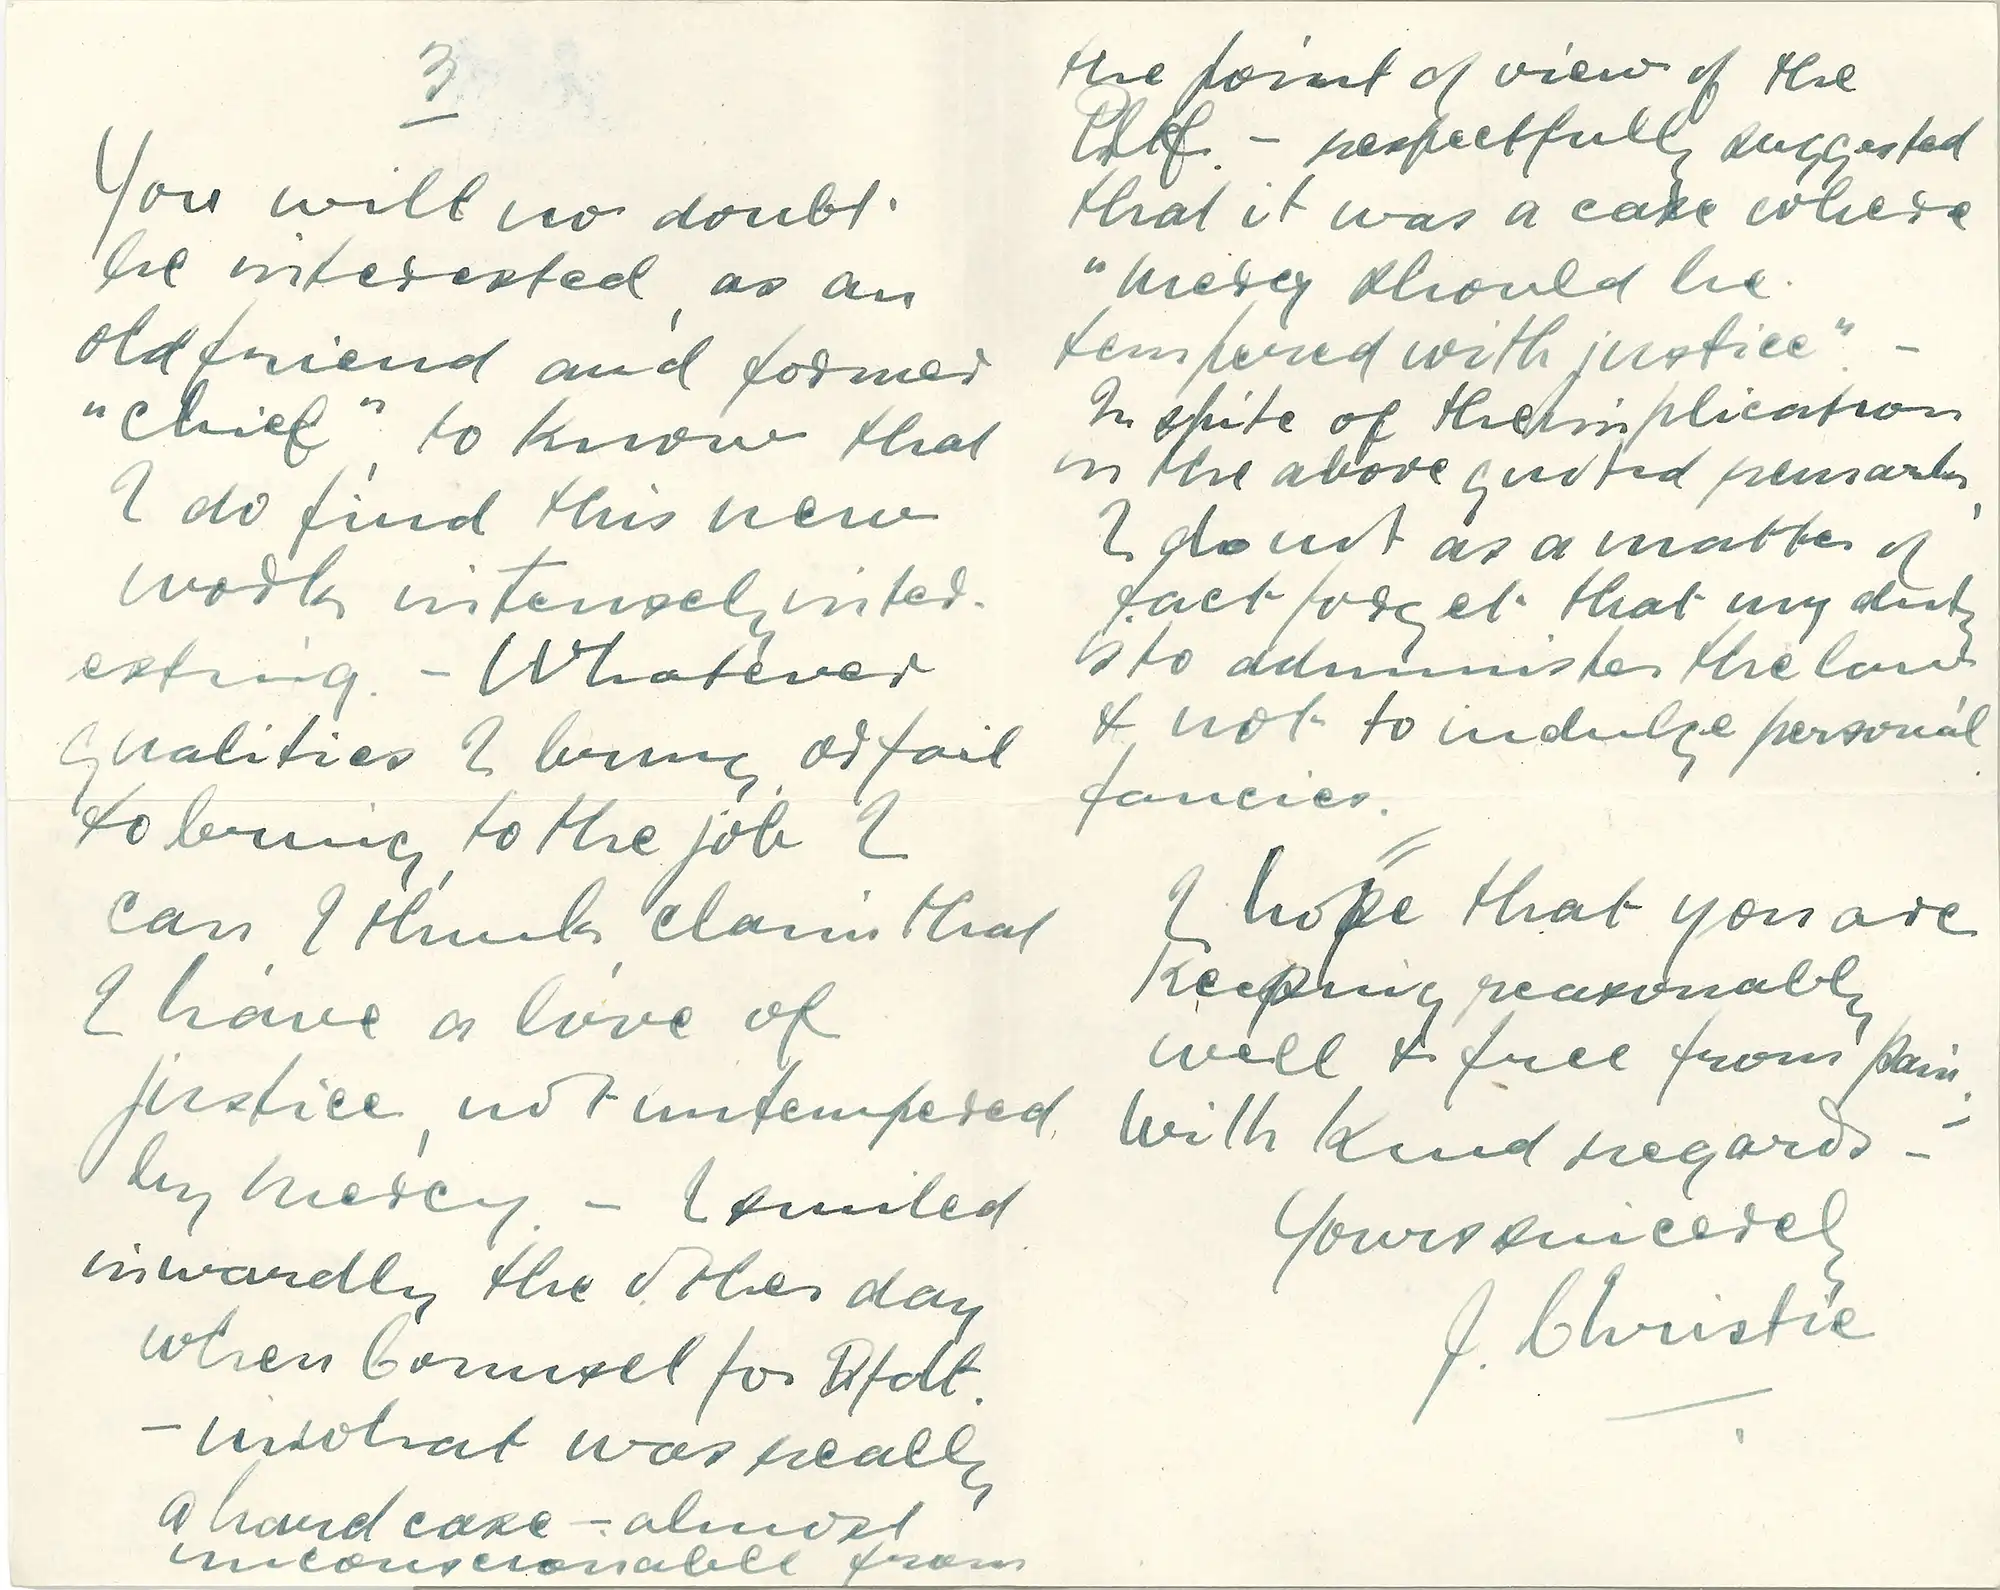 3
You will no doubt
be interested, as an
old friend and former
"Chief", to know that
I do find this new
work intensely inter-
esting. - Whatever
qualities I bring, or fail
to bring, to the job I
can, I think, claim that
I have a love of
justice, not untempered
by mercy. - I smiled
inwardly the other day
when Counsel for Dfdt.
- in what was really
a hard case - almost
unconscionable from
the point of view of the
Pltf. - respectfully suggested
that it was a case where
"mercy should be
tempered with justice". -
In spite of the implication
in the above quoted remarks,
I do not as a matter of
fact forget that my duty
is to administer the law
& not to indulge personal
fancies.
I hope that you are
keeping reasonably
well & free from pain.
With kind regards -
Yours sincerely
J. Christie